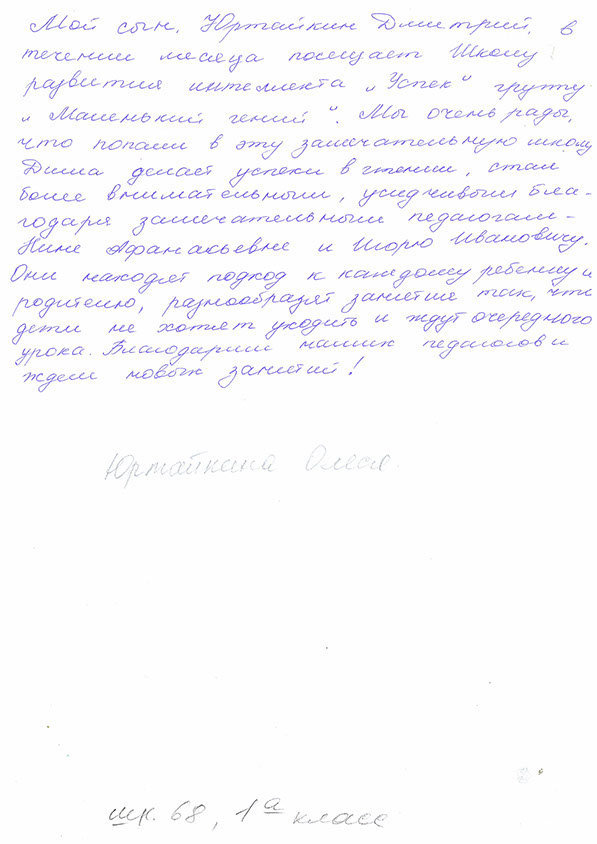 Мой сын, Юртайкин Дмитрий, в
течении месяца посещает Школу
развития интеллекта „Успех“ группу
„Маленький гений“. Мы очень рады,
что попали в эту замечательную школу
Дима делает успехи в чтении, стал
более внимательным, усидчивым бла-
годаря замечательным педагогам –
Нине Афанасьевне и Игорю Ивановичу.
Они находят подход к каждому ребенку и
родителю, разнообразят занятие так, что
дети не хотят уходить и ждут очередного
урока. Благодарим наших педагогов и
ждем новых занятий!
Юртайкина Олеся.
шк. 68, 1а класс